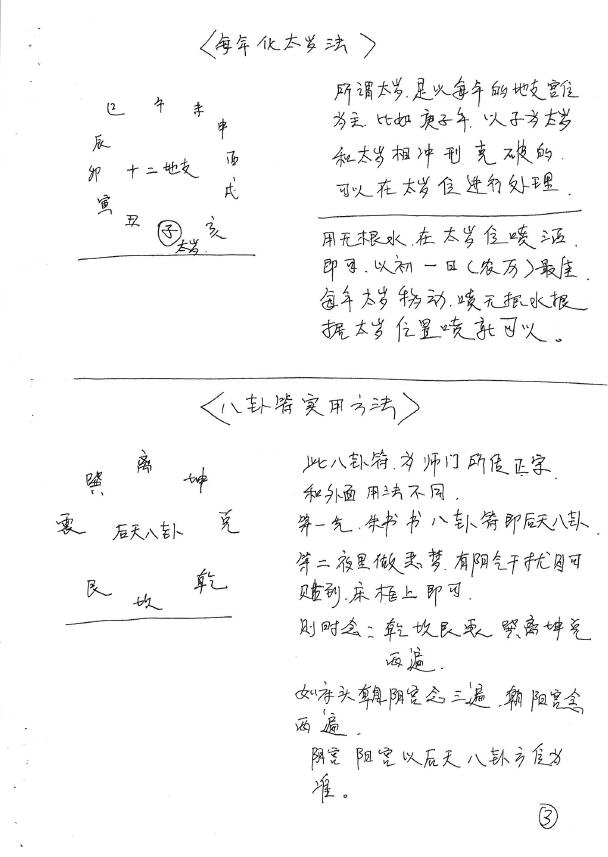 〈每年化太岁法〉
巳 午 未
申
辰
酉
卯 十二地支
戌
寅
丑 子 亥
太岁
所谓太岁.是以每年的地支宫位
为主.比如庚子年.以子为太岁
和太岁相冲刑克破的.
可以在太岁位进行处理.
用无根水.在太岁位喷洒.
即可.以初一日(农历)最佳
每年太岁移动.喷无根水根
据太岁位置喷就可以。
〈八卦符实用方法〉
巽 离 坤
震 后天八卦 兑
艮 坎 乾
此八卦符.为师门所传正宗
和外面用法不同.
第一先.朱书书八卦符即后天八卦.
第二夜里做恶梦.有阴令干扰用可
贴到.床框上即可.
则时念:乾坎艮震 巽离坤兑
两遍.
如床头朝阴宫念三遍.朝阳宫念
两遍.
阴宫 阳宫以后天八卦方位为
准。
③